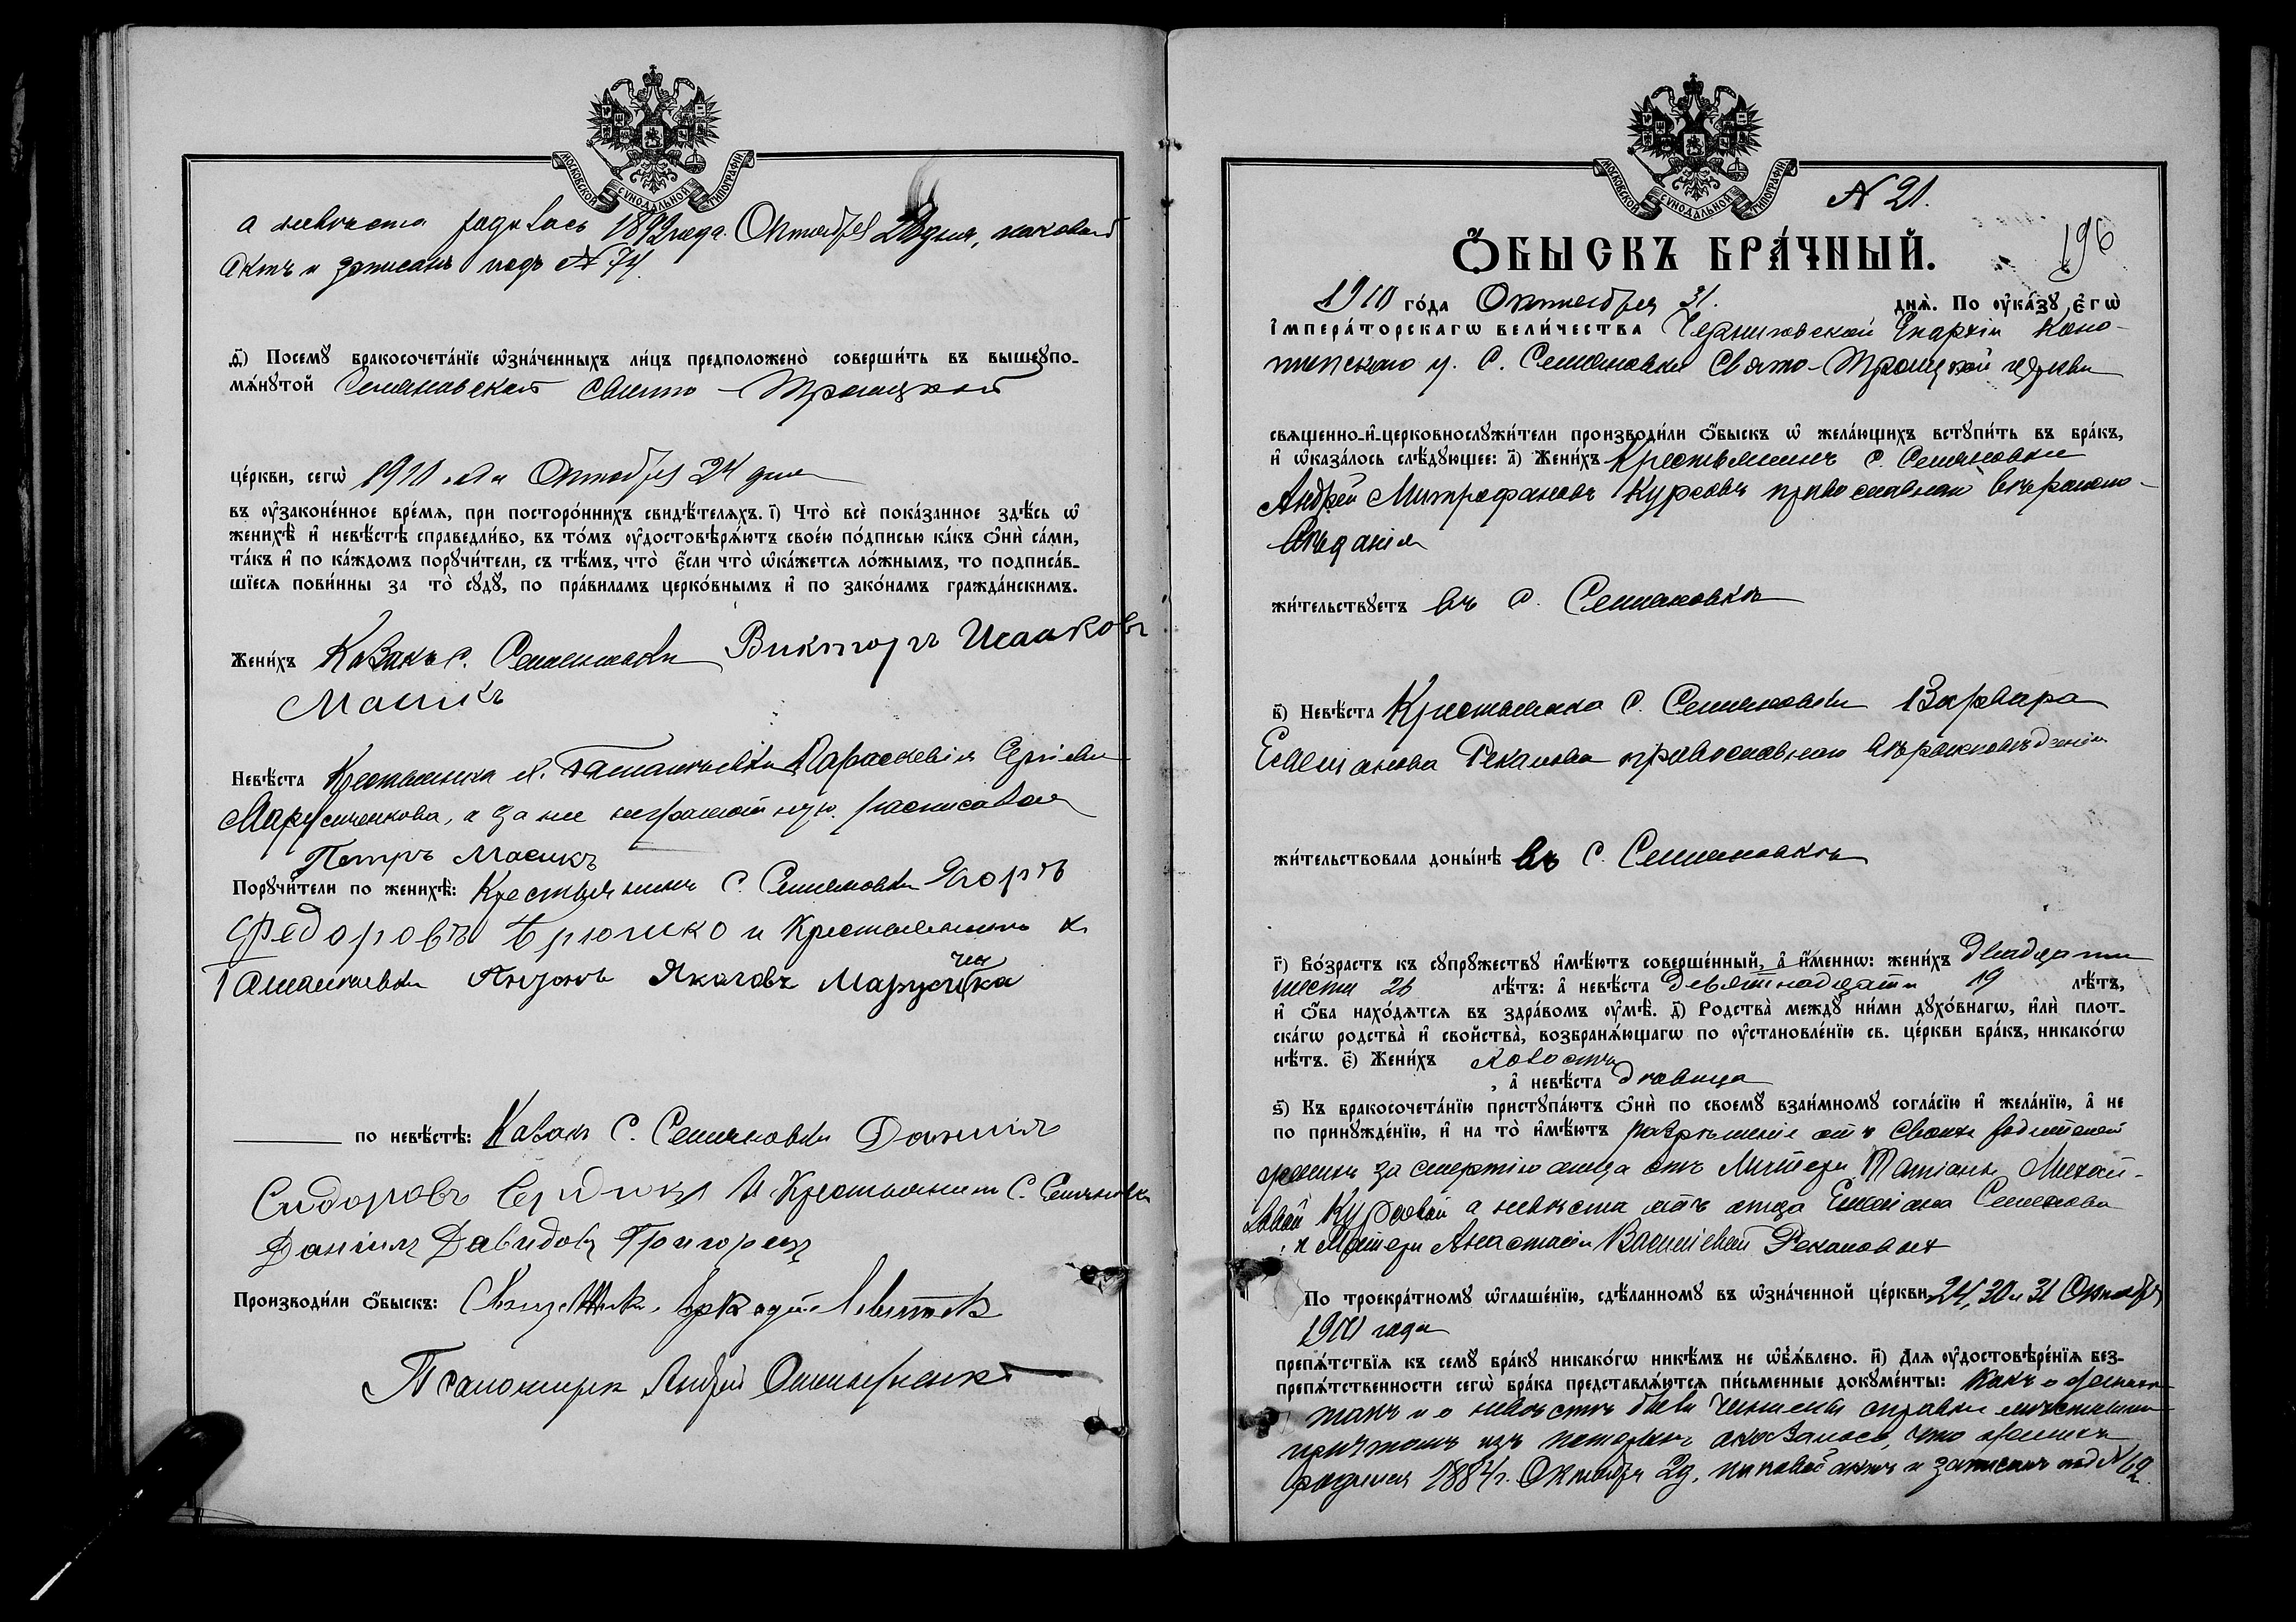 МОСКОВСКОЙ СѴНОДАЛЬНОЙ ТИПОГРАФІИ.
а невѣста родилась 1892 года Октября 28 дня, каковый
актъ и записанъ подъ № 74.
д҃і) Посемꙋ̀ бракосочета́нїе ѡ҆зна́ченныхъ ли́цъ предположено̀ соверши́ть въ вышеꙋпо-
мѧ́нꙋтой Семяновской Свято-Троицкой
це́ркви, сегѡ̀ 1910 года Октября 24 дня
въ ᲂу҆зако́ненное вре́мѧ, при посторо́ннихъ свидѣ́телѧхъ. і҃) Что̀ всѐ пока́занное здѣ́сь ѡ҆
женихѣ̀ и҆ невѣ́стѣ справедли́во, въ то́мъ ᲂу҆достовѣрѧ́ютъ свое́ю по́дписью ка́къ ѻ҆нѝ са́ми,
та́къ и҆ по ка́ждомъ порꙋчи́тели, съ тѣ́мъ, что̀ є҆́сли что̀ ѡ҆ка́жетсѧ ло́жнымъ, то подписа́в-
шїесѧ пови́нны за то̀ сꙋдꙋ̀, по пра́виламъ церко́внымъ и҆ по зако́намъ гражда́нскимъ.
Жени́хъ Козакъ с. Семяновки Викторъ Исааковъ
Масикъ
Невѣ́ста Крестьянка Параскевія Сергіева
Марусиченкова, а за нее неграмотную росписался
Петръ Масикъ
Порꙋчи́тели по женихѣ̀: Крестьянинъ с. Семяновки Егоръ
Федоровъ и Крестьянинъ х.
Антонъ Яковъ Марусиченка
по невѣ́стѣ: Козакъ с. Семяновки Даніилъ
Сидоровъ и Крестьянинъ с. Семяновки
Даніилъ Давидовъ Григорец
Производи́ли ѻ҆́быскъ: Священникъ Аркадій Левитскій
Псаломщикъ Андрей
МОСКОВСКОЙ СѴНОДАЛЬНОЙ ТИПОГРАФІИ.
№ 21.
196
Ѻ҆́БЫСКЪ БРА́ЧНЫЙ.
1910 го́да Октября 31. днѧ̀. По ᲂу҆ка́зꙋ є҆гѡ̀
і҆мпера́торскагѡ вели́чества Черниговской Епархіи Коно-
топскаго у. с. Семяновки Свято-Троицкой церкви
свѧщенно-и҆-церковнослꙋжи́тели производи́ли ѻ҆́быскъ ѡ҆ жела́ющихъ встꙋпи́ть въ бра́къ,
и҆ ѡ҆каза́лось слѣ́дꙋющее: а҃) Жени́хъ Крестьянинъ с. Семяновки
Андрей Митрофановъ Курсовъ православнаго вѣроиспо-
вѣданія
жи́тельствꙋетъ въ с. Семяновкѣ
в҃) Невѣ́ста Крестьянка с. Семяновки Варвара
Емельянова Рекалова православнаго вѣроисповѣданія
жи́тельствовала доны́нѣ въ с. Семяновкѣ
г҃) Во́зрастъ къ сꙋпрꙋ́жествꙋ и҆мѣ́ютъ соверше́нный, а҆ и҆́меннѡ: жени́хъ двадцати
шести 26 лѣ́тъ: а҆ невѣ́ста девятнадцати 19 лѣ́тъ,
и҆ ѻ҆́ба нахо́дѧтсѧ въ здра́вомъ ᲂу҆мѣ̀. д҃) Родства̀ междꙋ̀ ни́ми дꙋхо́внагѡ, и҆лѝ плот-
ска́гѡ родства̀ и҆ сво́йства̀, возбранѧ́ющагѡ по ᲂу҆становле́нїю св. це́ркви бра́къ, никако́гѡ
нѣ́тъ. є҃) Жени́хъ холостъ
, а҆ невѣ́ста дѣвица
ѕ҃) Къ бракосочета́нїю пристꙋпа́ютъ ѻ҆нѝ по своемꙋ̀ взаи́мномꙋ согла́сїю и҆ жела́нїю, а҆ не
по принꙋжде́нїю, и҆ на то̀ и҆мѣ́ютъ разрѣшеніе отъ своихъ родителей
женихъ за смертію отца отъ Матери Татіаны Михай-
ловой Курсовой а невѣста отъ отца Емеліана Семенова
и Матери Анастасіи Васильевой Рекаловых
По троекра́тномꙋ ѡ҆глаше́нїю, сдѣ́ланномꙋ въ ѡ҆зна́ченной це́ркви 24, 30 и 31 Октября
1910 года
препѧ́тствїѧ къ семꙋ̀ бра́кꙋ никако́гѡ никѣ́мъ не ѡ҆б̾ѧ́влено. и҃) Длѧ ᲂу҆достовѣре́нїѧ без-
препѧ́тственности сегѡ̀ бра́ка представлѧ́ютсѧ пи́сьменные докꙋме́нты: Какъ о женихѣ
такъ и о невѣстѣ были учинены справки мѣстнымъ
причтомъ изъ которыхъ оказалось, что женихъ
родился 1884 г. Октября 2 д., каковой актъ и записанъ под № 62.